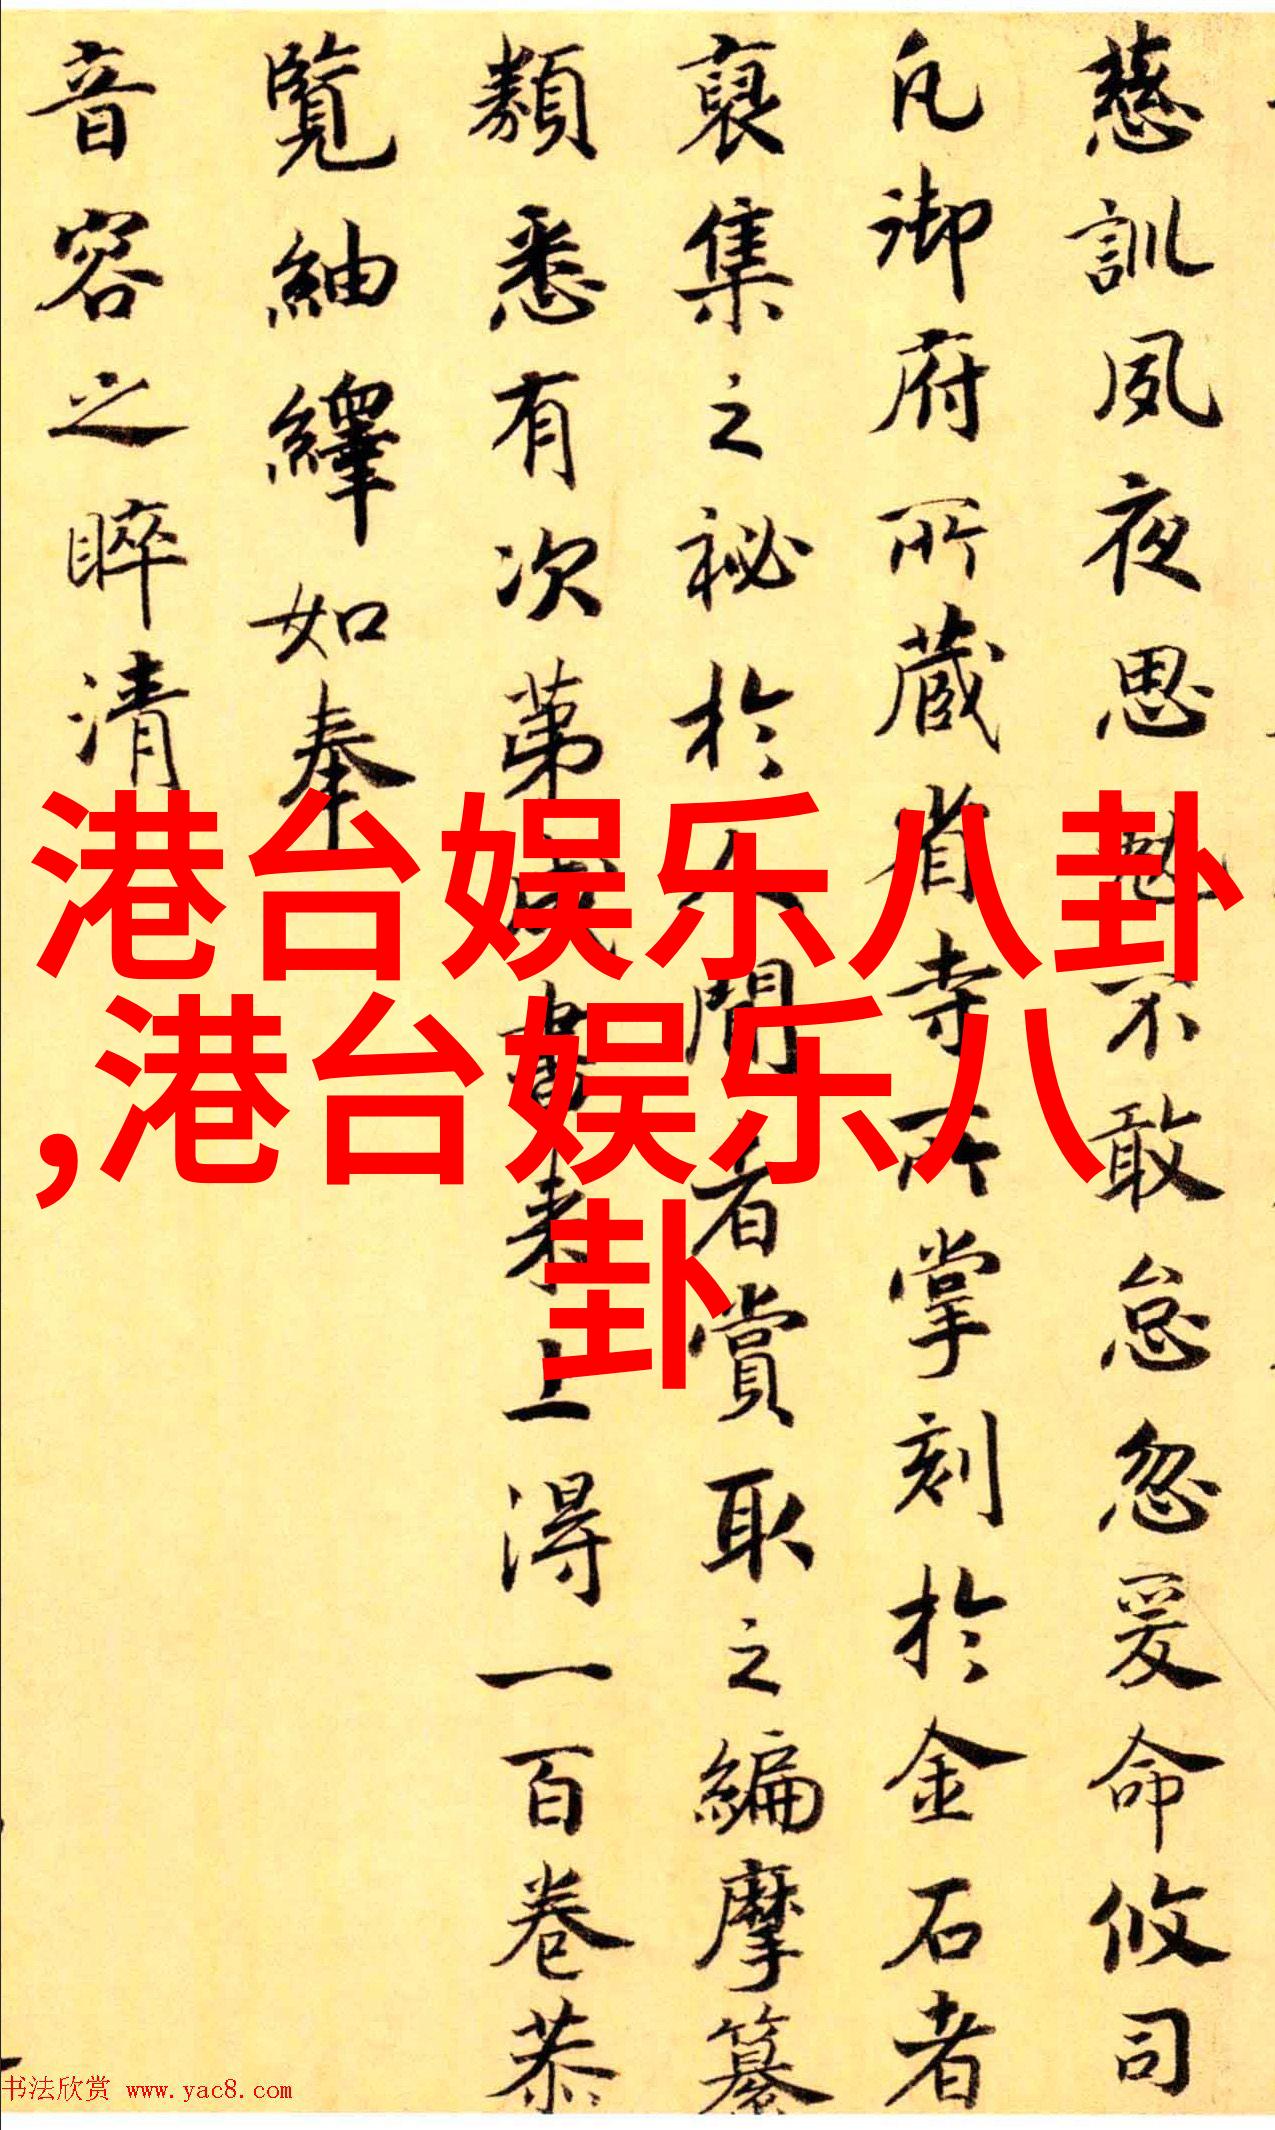 慈訓夙夜思〇不敢怠忽爰命攸司
凡御府所藏省寺所掌刻於金石者
裒集之祕於人間者賞取之編摩纂
類悉有次第成書来上得一百卷恭
覽紬繹如奉
音容之睟清
港台娱乐八卦
,港台娱乐八
卦
书法欣赏 www.yac8.com